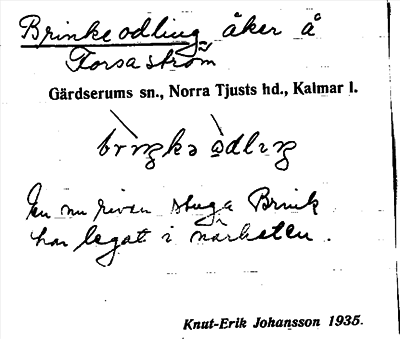 Brinkeodling åker å
Forsaström
Gärdserums sn., Norra Tjusts hd., Kalmar l.
brìŋkə òdlıŋ
En nu riven stuga Brink
har legat i närheten.
Knut-Erik Johansson 1935.